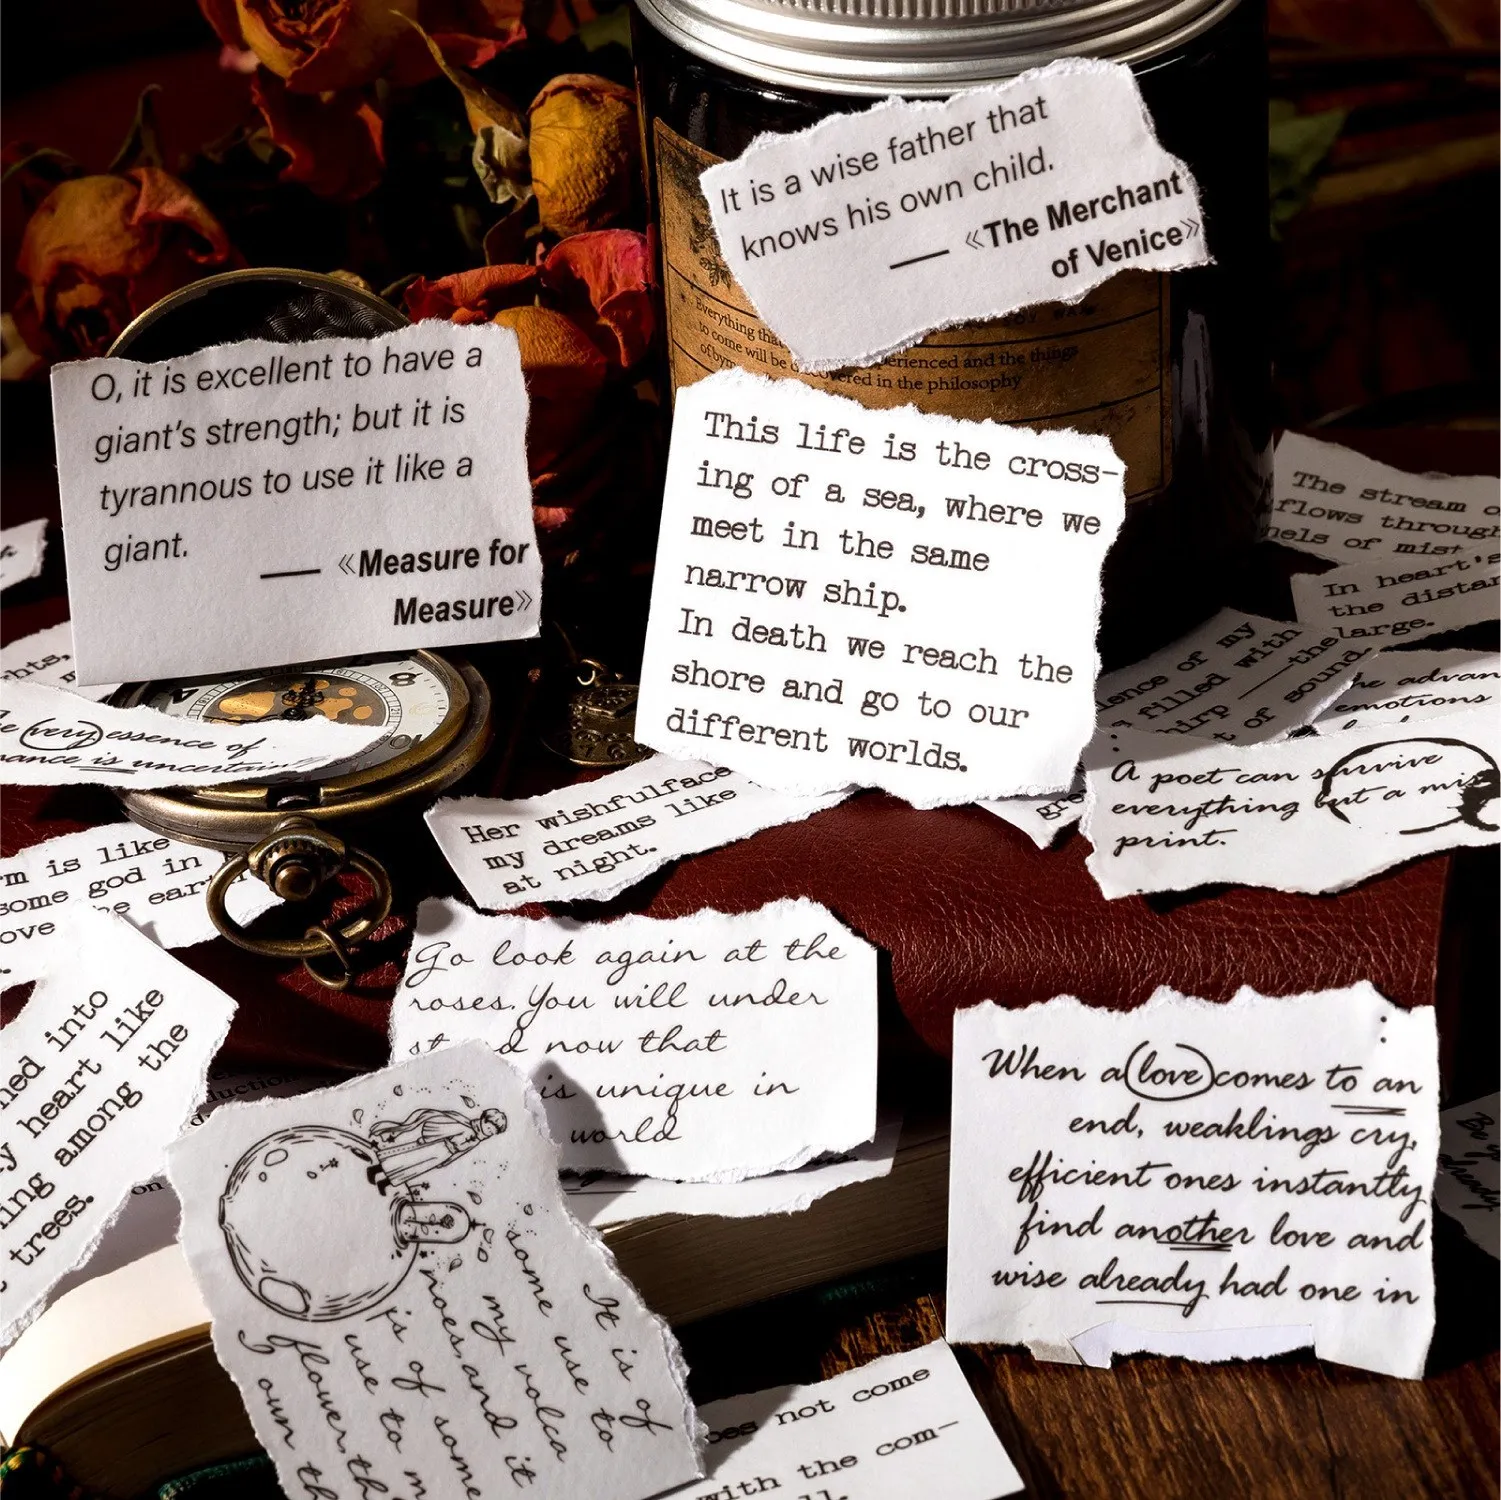 It is a wise father that
knows his own child.
— «The Merchant
of Venice»
Everything tha
to come will be
perienced and the things
covered in the philosophy
O, it is excellent to have a
giant's strength; but it is
tyrannous to use it like a
giant.
— «Measure for
Measure»
This life is the cross-
ing of a sea, where we
meet in the same
narrow ship.
In death we reach the
shore and go to our
different worlds.
The stream o
flows through
nels of mist
In heart's
the distan
large.
lence of my
filled with
hirp —the
t of sound.
he advan
emotions
hts,
e (very) essence of
ance is uncertain
Her wishfulface
my dreams like
at night.
gre
A poet can survive
everything but a mis
print.
rm is like
some god in
ove he eart
ned into
y heart like
ning among the
trees.
duction
on
Go look again at the
roses.You will under
st d now that
is unique in
world
When a love comes to an
end, weaklings cry,
efficient ones instantly
find another love and
wise already had one in
It is of
some use to
my volca
noes,and it
is of some
use to m
flower,th
I own th
oes not come
with the com-